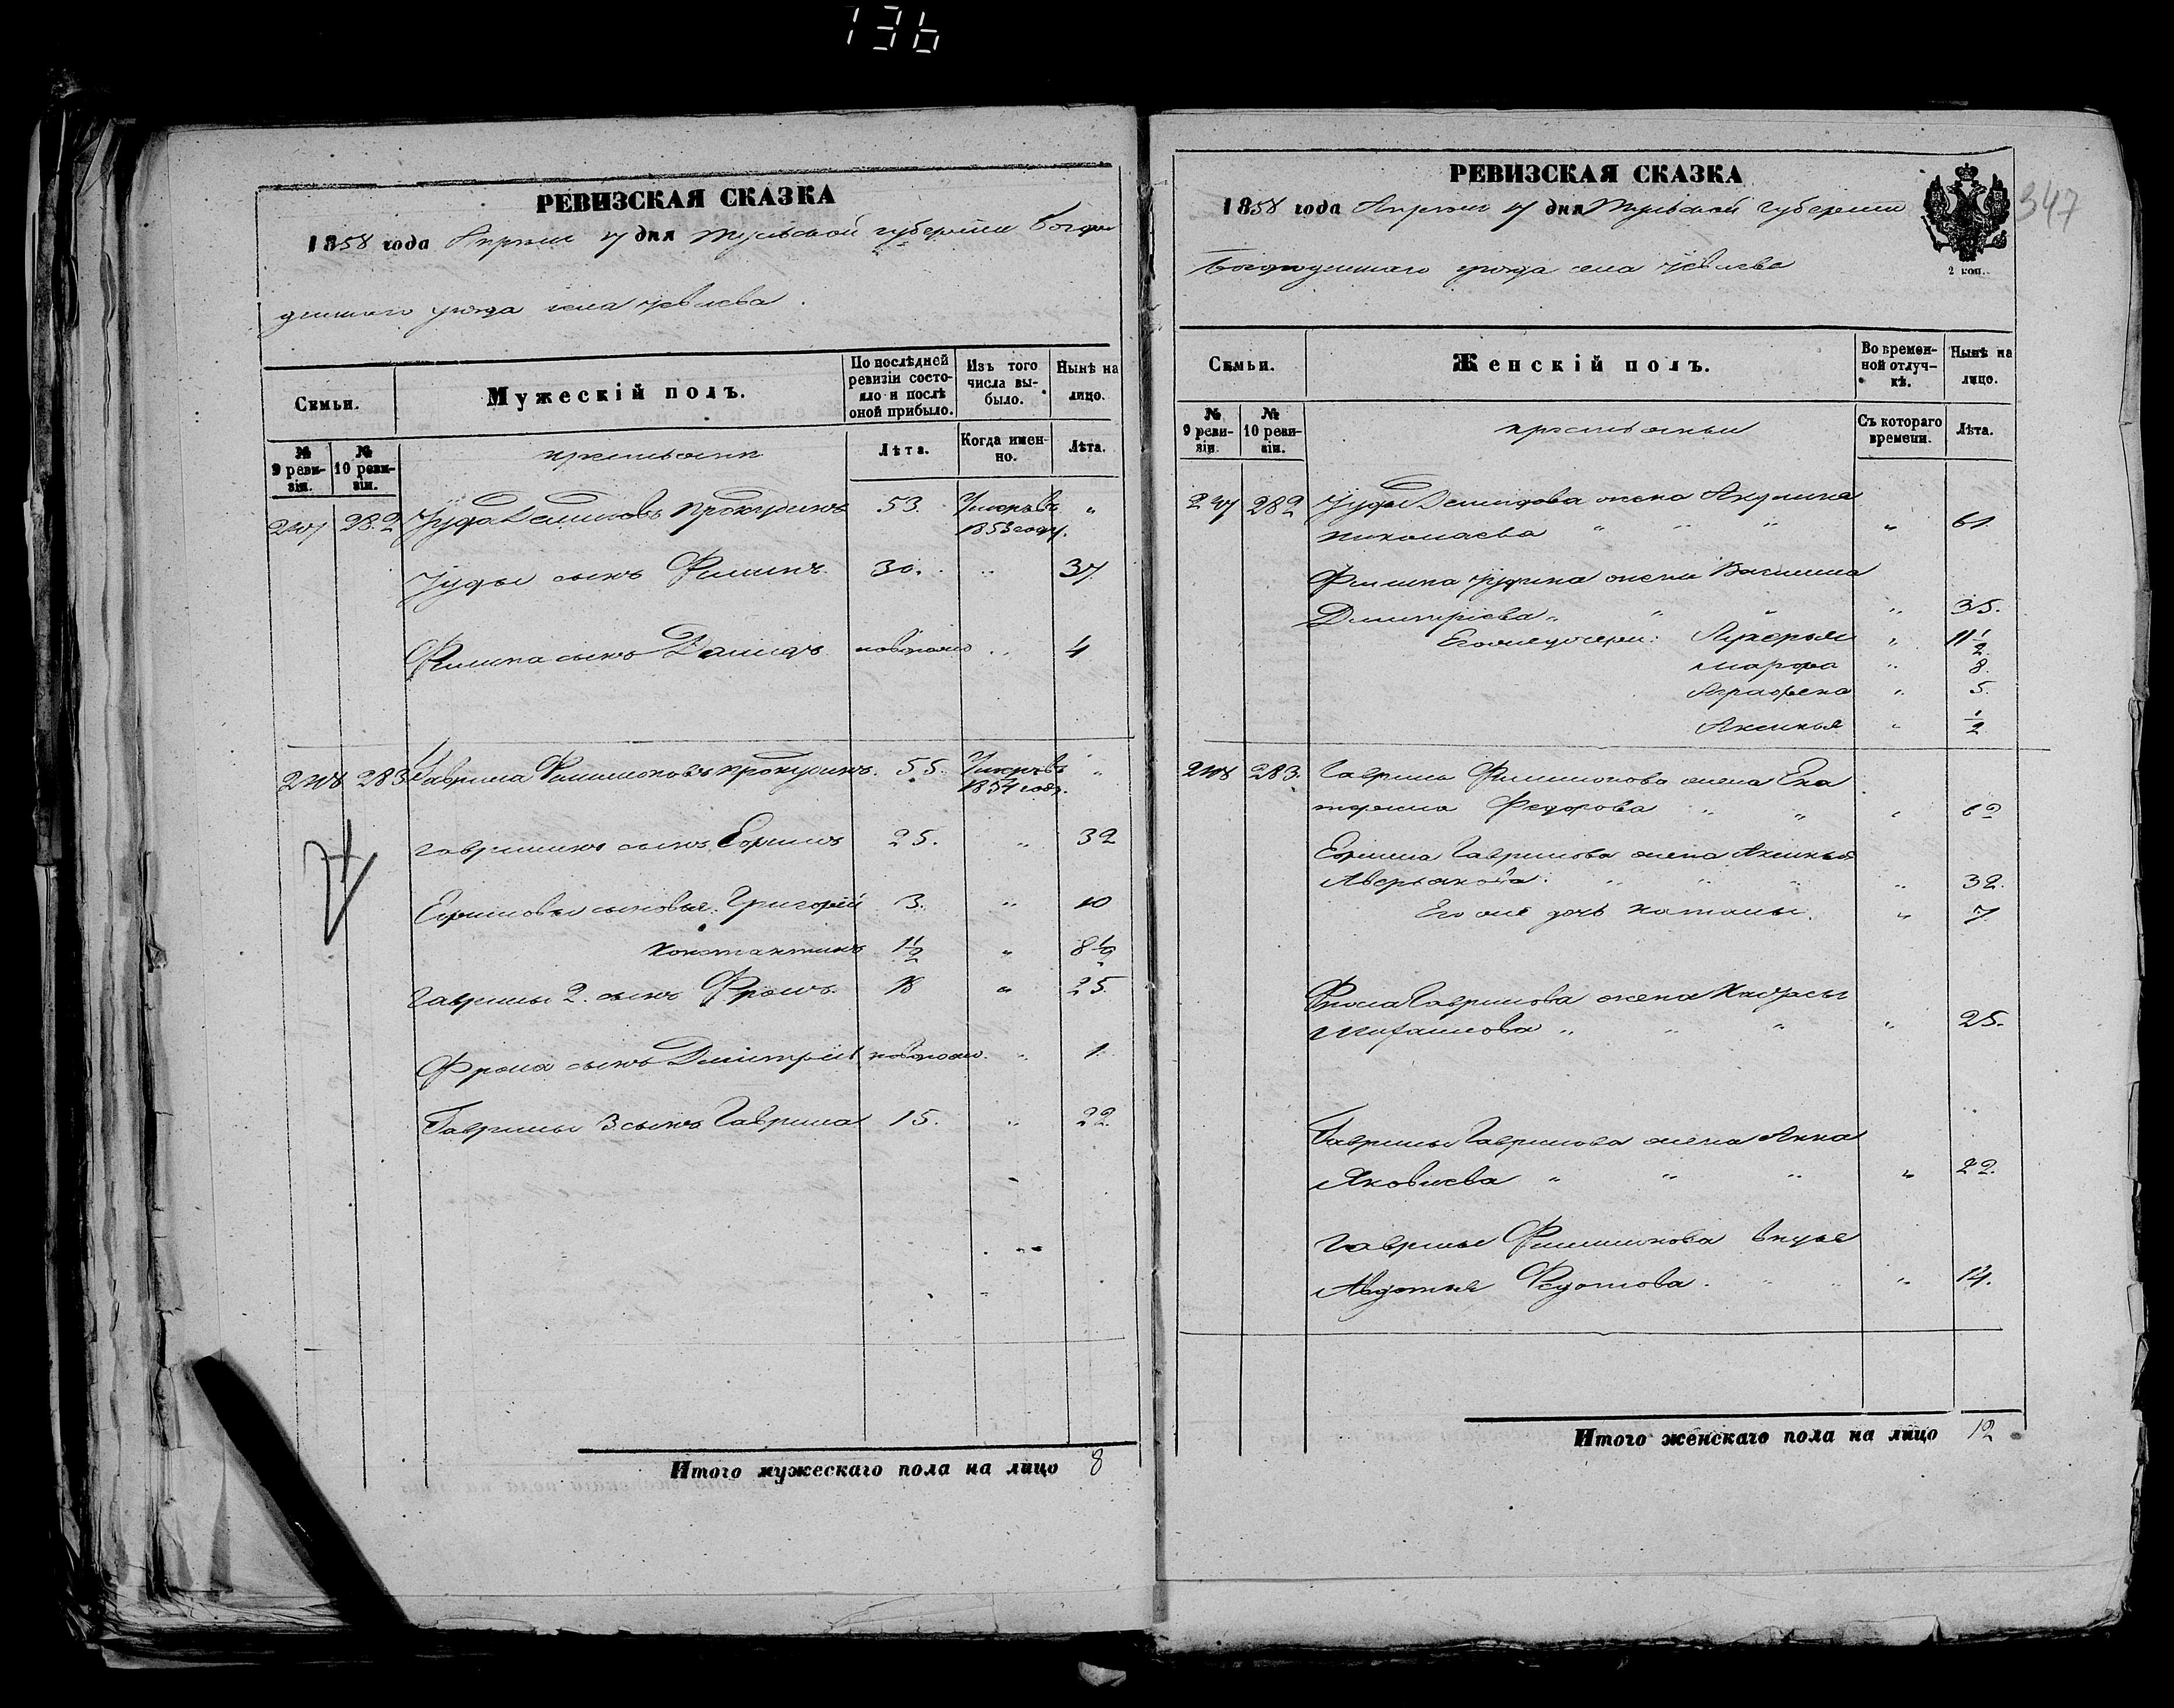 136
РЕВИЗСКАЯ СКАЗКА
1858 года Апреля 17 дня Тульской губернии Богоро
дицкаго уезда села
Семьи.
Мужескій полъ.
По послѣдней ревизіи состо-яло и послѣ оной прибыло.
Изъ того числа вы-было.
Нынѣ на лицо.
№ 9 реви-зіи.
№ 10 реви-зіи.
крестьяне
Лѣта.
Когда имен-но.
Лѣта.
282 Іуда Демидовъ Прокудинъ 53. Умеръ въ 1853 году. "
Іуды сынъ Филипъ 30. " 37
Филипа сынъ Давидъ новорож " 4
283 Гаврила Филимоновъ Прокудинъ. 55. Умеръ въ 1854 годе. "
Гавриловъ сынъ Ефимъ 25. " 32
Ефимовы сыновья: Григорей 3. " 10
Константинъ 1 1/2 " 8 1/2
Гаврилы 2. сынъ Фролъ 18 " 25
Фрола сынъ Дмитрей новорож. " 1
Гаврилы 3 сынъ Гаврила 15. " 22
Итого мужескаго пола на лицо 8
РЕВИЗСКАЯ СКАЗКА
347
1858 года Апреля 17 дня Тульской губернии
Богородицкаго уезда села
2 коп.
Семьи.
Женскій полъ.
Во времен-ной отлуч-кѣ.
Нынѣ на лицо.
№ 9 реви-зіи.
№ 10 реви-зіи.
крестьянки
Съ котораго времени.
Лѣта.
282 Іуды Демидова жена Акулина
Николаева " " " " 61
Филипа Іудина жена Василиса
Дмитріева " " " " 35.
Его же дочери: Лукерья " 11 1/2
Марфа " 8.
Аграфена " 5.
Аксинья " 1/2
283. Гаврилы Филимонова жена Ека
терина Федорова " " " 62
Ефима Гаврилова жена Аксинья
Аверьянова " " " " 32.
Его же дочь Наталья. " 7
Фрола Гаврилова жена Настасья
" " " " 25.
Гаврилы Гаврилова жена Анна
Яковлева " " " " 22.
Гаврилы Филимонова внука
Авдотья Федотова. " " " 14.
Итого женскаго пола на лицо 12